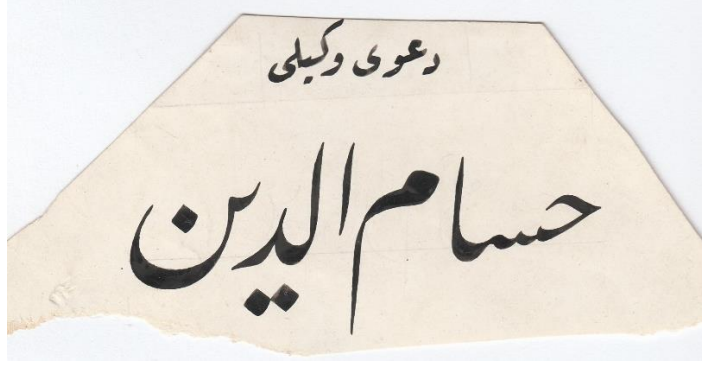 دعوى وكیلى
حسام الدین